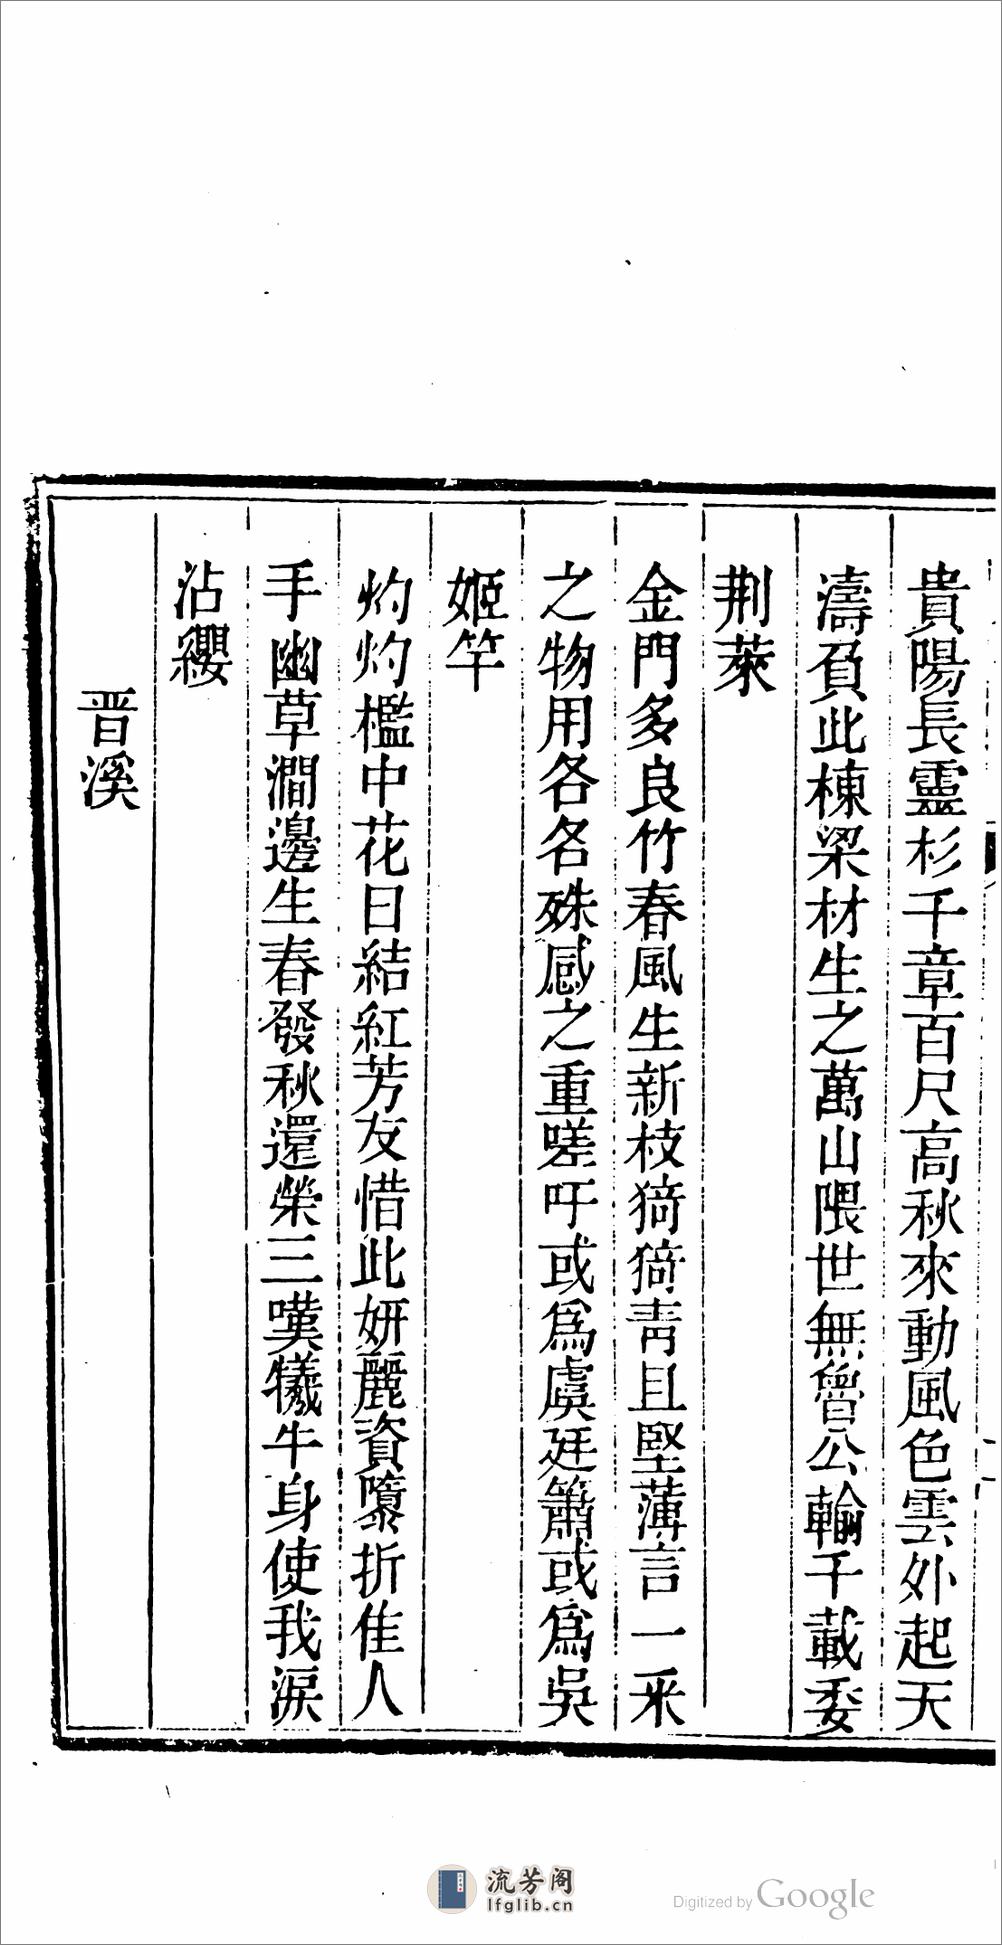 貴陽長靈杉千章百尺高秋來動風色雲外起天
濤負此棟梁材生之萬山隈世無曾公輸千載委
荆萊
金門多良竹春風生新枝猗猗靑且堅薄言一采
之物用各名殊感之重嗟吁或爲虞廷簫或爲吳
姬竿
灼灼檻中花日結紅芳友惜此姸麗資隳折佳人
手幽草澗邊生春發秋還榮三嘆犧牛身使我淚
沾纓
晋溪
流芳阁
lfglib.cn
Digitized by Google